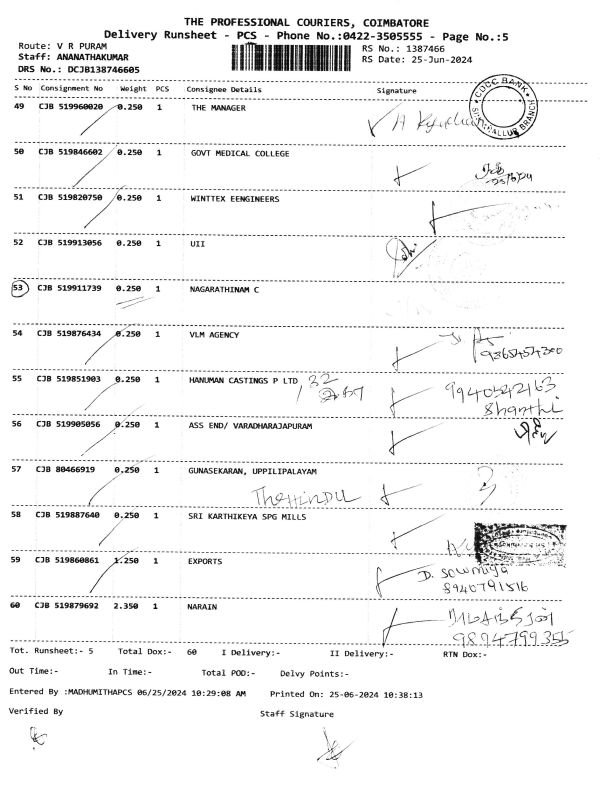 THE PROFESSIONAL COURIERS, COIMBATORE
Delivery Runsheet - PCS - Phone No.:0422-3505555 - Page No.:5
Route: V R PURAM RS No.: 1387466
Staff: ANANATHAKUMAR RS Date: 25-Jun-2024
DRS No.: DCJB138746605
S No Consignment No Weight PCS Consignee Details Signature
CDCC BANK
49 CJB 519960020 0.250 1 THE MANAGER
50 CJB 519846602 0.250 1 GOVT MEDICAL COLLEGE
51 CJB 519820750 0.250 1 WINTTEX EENGINEERS
52 CJB 519913056 0.250 1 UII
53 CJB 519911739 0.250 1 NAGARATHINAM C
54 CJB 519876434 0.250 1 VLM AGENCY
9365454300
55 CJB 519851903 0.250 1 HANUMAN CASTINGS P LTD 9940542163
Shanthi
56 CJB 519905056 0.250 1 ASS END/ VARADHARAJAPURAM
57 CJB 80466919 0.250 1 GUNASEKARAN, UPPILIPALAYAM
The HINDU
58 CJB 519887640 0.250 1 SRI KARTHIKEYA SPG MILLS
59 CJB 519860861 1.250 1 EXPORTS
D. Sowmiya
8940791516
60 CJB 519879692 2.350 1 NARAIN
9894799355
Tot. Runsheet:- 5 Total Dox:- 60 I Delivery:- II Delivery:- RTN Dox:-
Out Time:- In Time:- Total POD:- Delvy Points:-
Entered By :MADHUMITHAPCS 06/25/2024 10:29:08 AM Printed On: 25-06-2024 10:38:13
Verified By Staff Signature